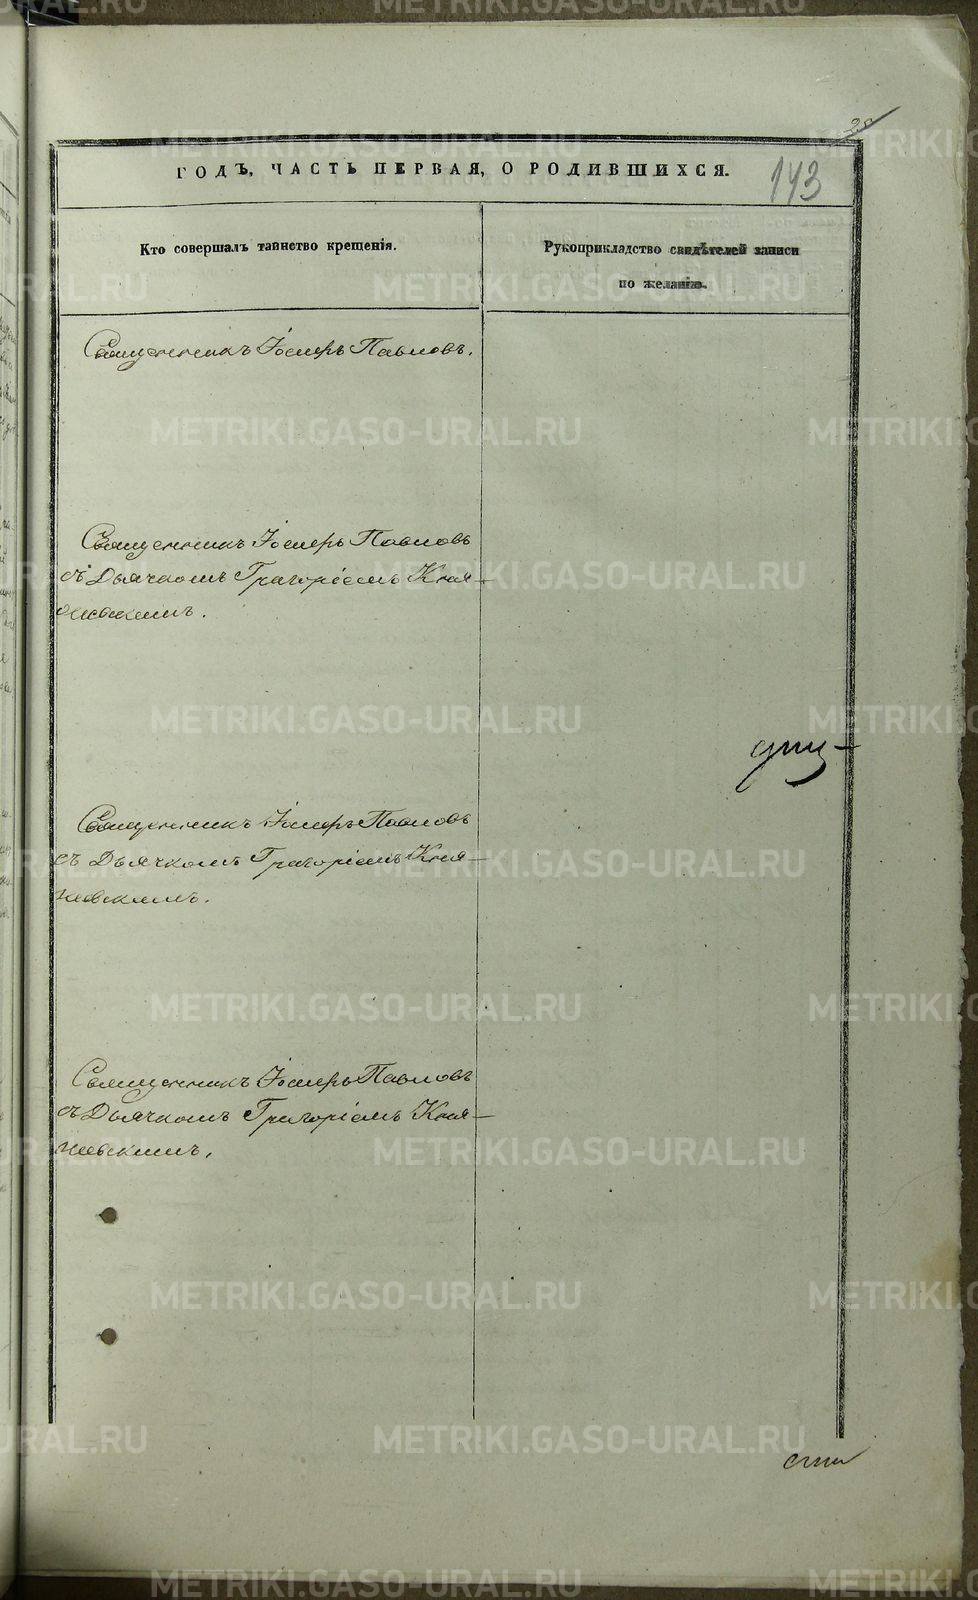 28
ГОДЪ, ЧАСТЬ ПЕРВАЯ, О РОДИВШИХСЯ.
143
Кто совершалъ таинство крещенія.
Рукоприкладство свидѣтелей записи
по желанію.
Священникъ Іосифъ Павловъ.
Священникъ Іосифъ Павловъ
съ Дьячкомъ Григоріемъ Кня-
жевскимъ.
Священникъ Іосифъ Павловъ
съ Дьячкомъ Григоріемъ Кня-
жевскимъ.
Священникъ Іосифъ Павловъ
съ Дьячкомъ Григоріемъ Кня-
жевскимъ.
METRIKI.GASO-URAL.RU